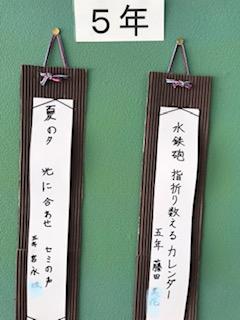 5年
水鉄砲 指折り数える カレンダー
五年 藤田
夏の夕 光に合わせ セミの声
五年